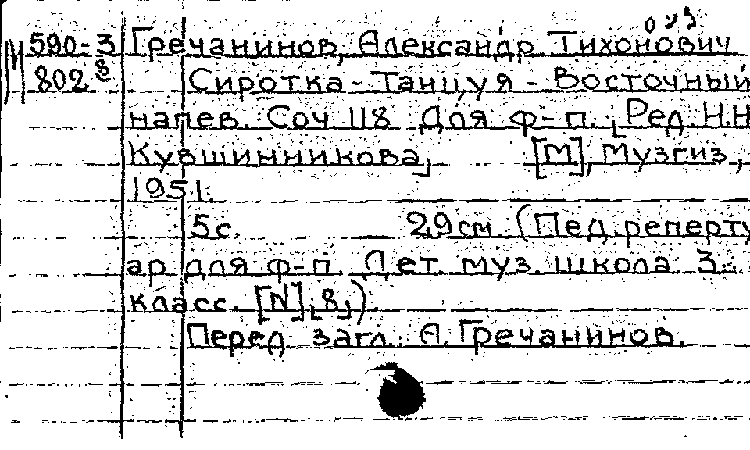 М 590-3 Гречанинов, Александр Тихонович
802 8 Сиротка - Танцуя - Восточный
напев. Соч 118 Для ф-п. [Ред. Н.Н
Кувшинникова] [М], Музгиз,
1951.
5с. 29см (Пед. реперту
ар для ф-п. Дет. муз. школа 3.
класс. [N] [8])
Перед загл.: А. Гречанинов.